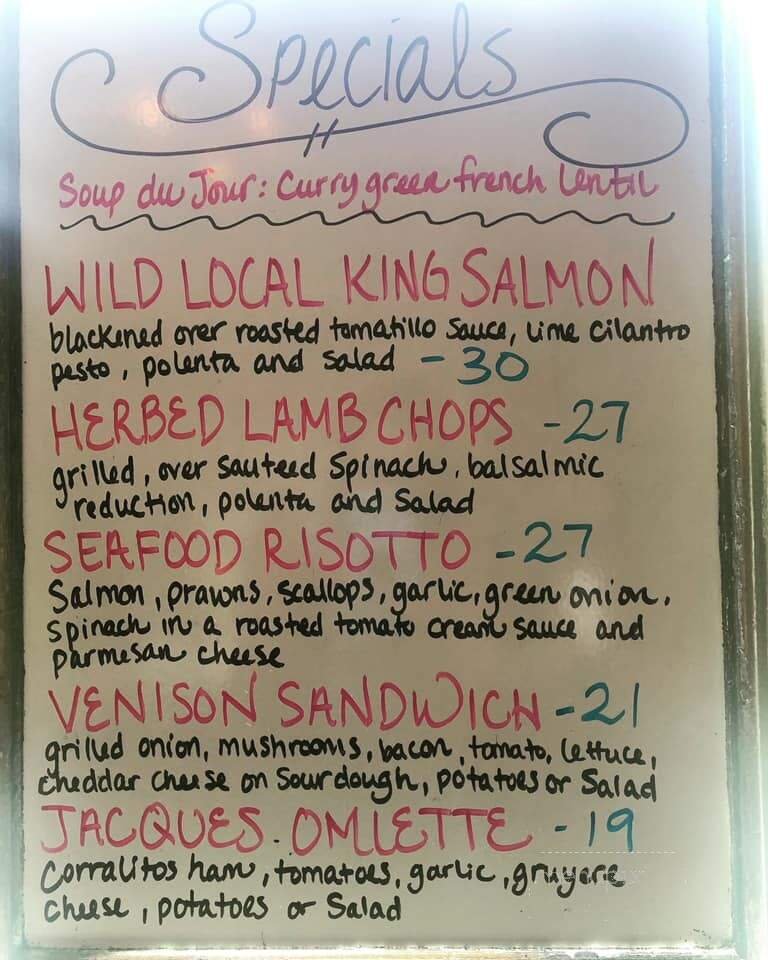 Specials
Soup du Jour: Curry green french lentil
WILD LOCAL KING SALMON
blackened over roasted tomatillo sauce, lime cilantro
pesto, polenta and salad - 30
HERBED LAMB CHOPS - 27
grilled, over sauteed spinach, balsalmic
reduction, polenta and salad
SEAFOOD RISOTTO - 27
Salmon, prawns, scallops, garlic, green onion,
spinach in a roasted tomato cream sauce and
parmesan cheese
VENISON SANDWICH - 21
grilled onion, mushrooms, bacon, tomato, lettuce,
cheddar cheese on sourdough, potatoes or salad
JACQUES OMLETTE - 19
Corralitos ham, tomatoes, garlic, gruyere
cheese, potatoes or salad